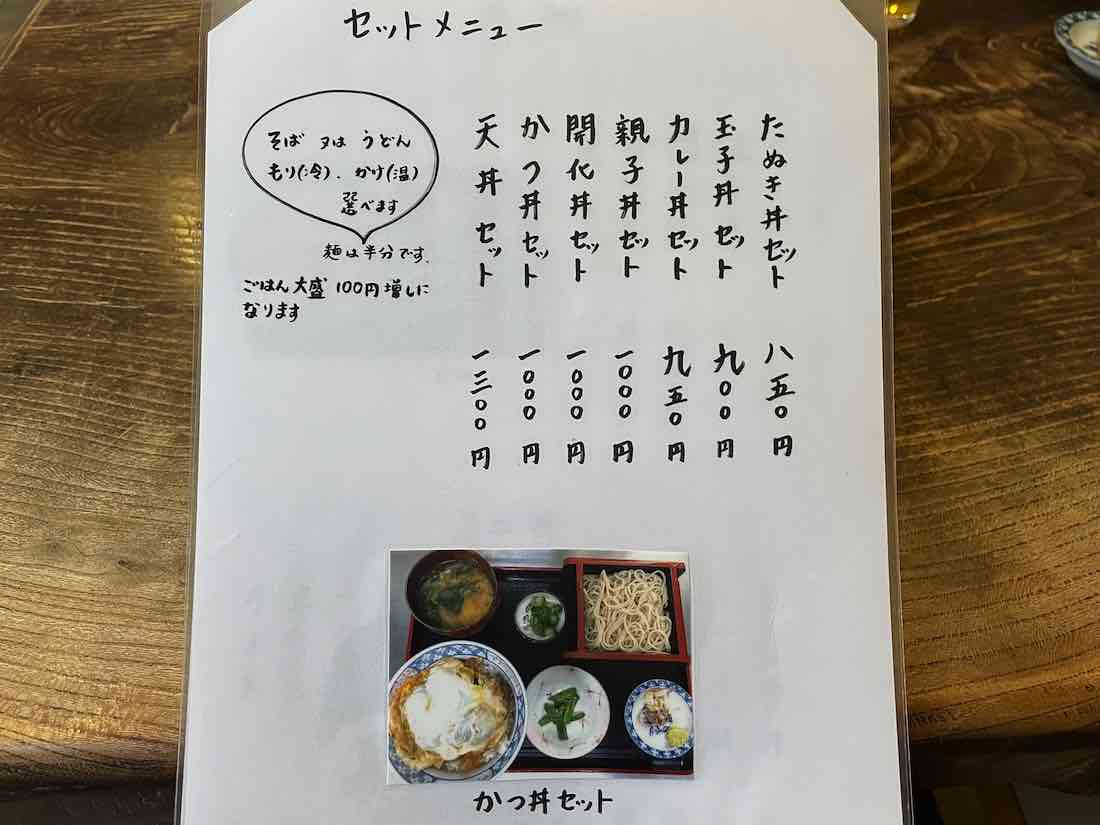 セットメニュー
たぬき丼セット 八五〇円
玉子丼セット 九〇〇円
カレー丼セット 九五〇円
親子丼セット 一〇〇〇円
開化丼セット 一〇〇〇円
かつ丼セット 一〇〇〇円
天丼セット 一三〇〇円
そば 又は うどん
もり(冷)、かけ(温)
選べます
麺は半分です。
ごはん大盛 100円増しに
なります
かつ丼セット